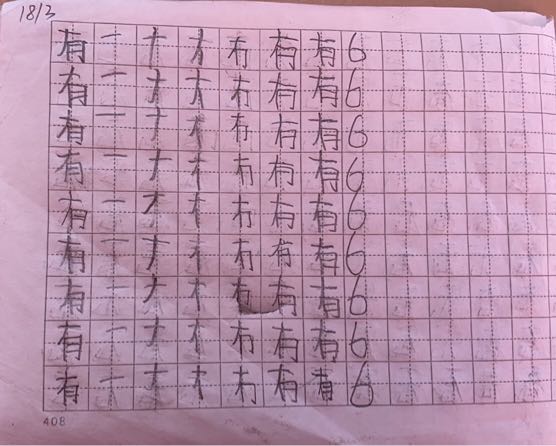 18/3
有 一 ナ 冇 有 有 6
有 一 ナ 冇 有 有 6
有 一 ナ 冇 有 有 6
有 一 ナ 冇 有 有 6
有 一 ナ 冇 有 有 6
有 一 ナ 冇 有 有 6
有 一 ナ 冇 有 有 6
有 一 ナ 冇 有 有 6
有 一 ナ 冇 有 有 6
408